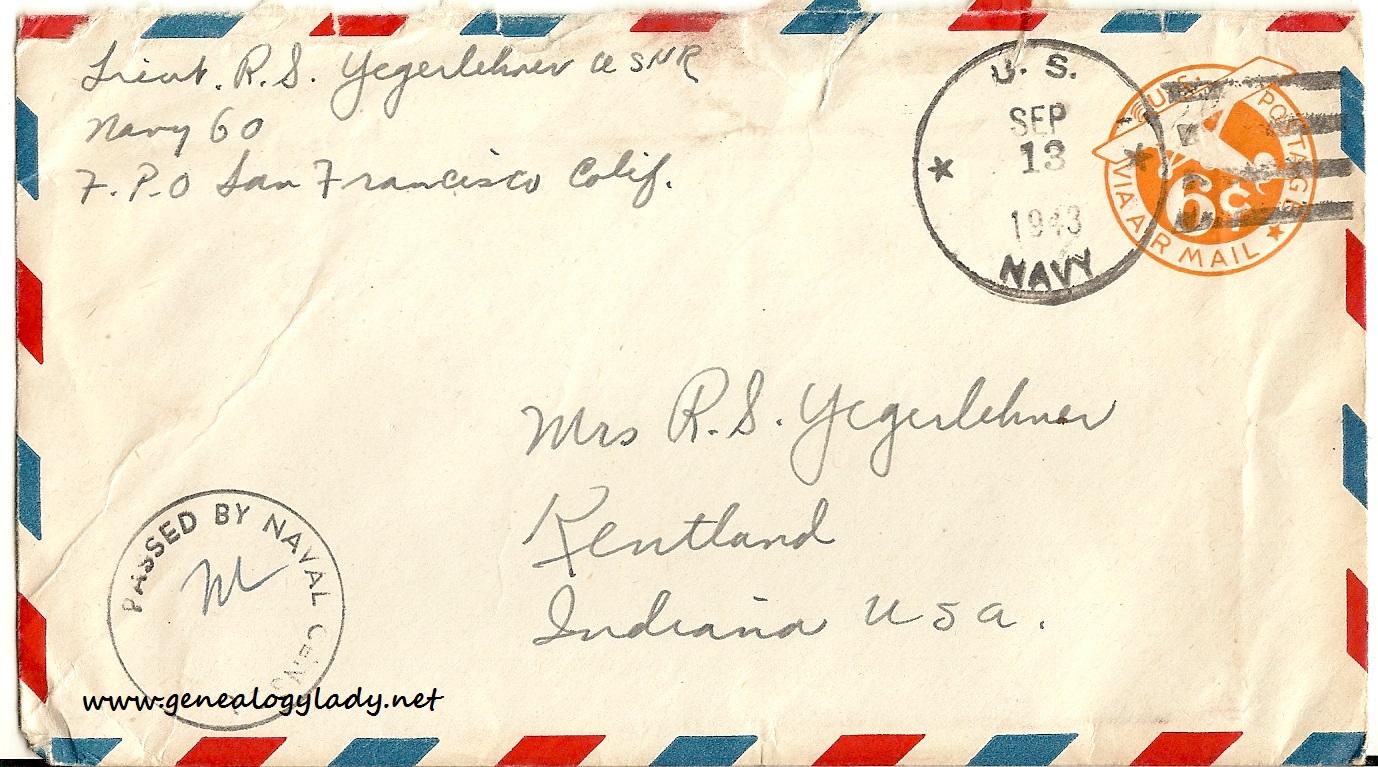 Lieut. R. S. Yegerlehner USNR
Navy 60
F.P.O San Francisco Calif.
U. S.
SEP
13
1943
NAVY
U.S. POSTAGE
6c
VIA AIR MAIL
Mrs R. S. Yegerlehner
Kentland
Indiana USA.
PASSED BY NAVAL
www.genealogylady.net